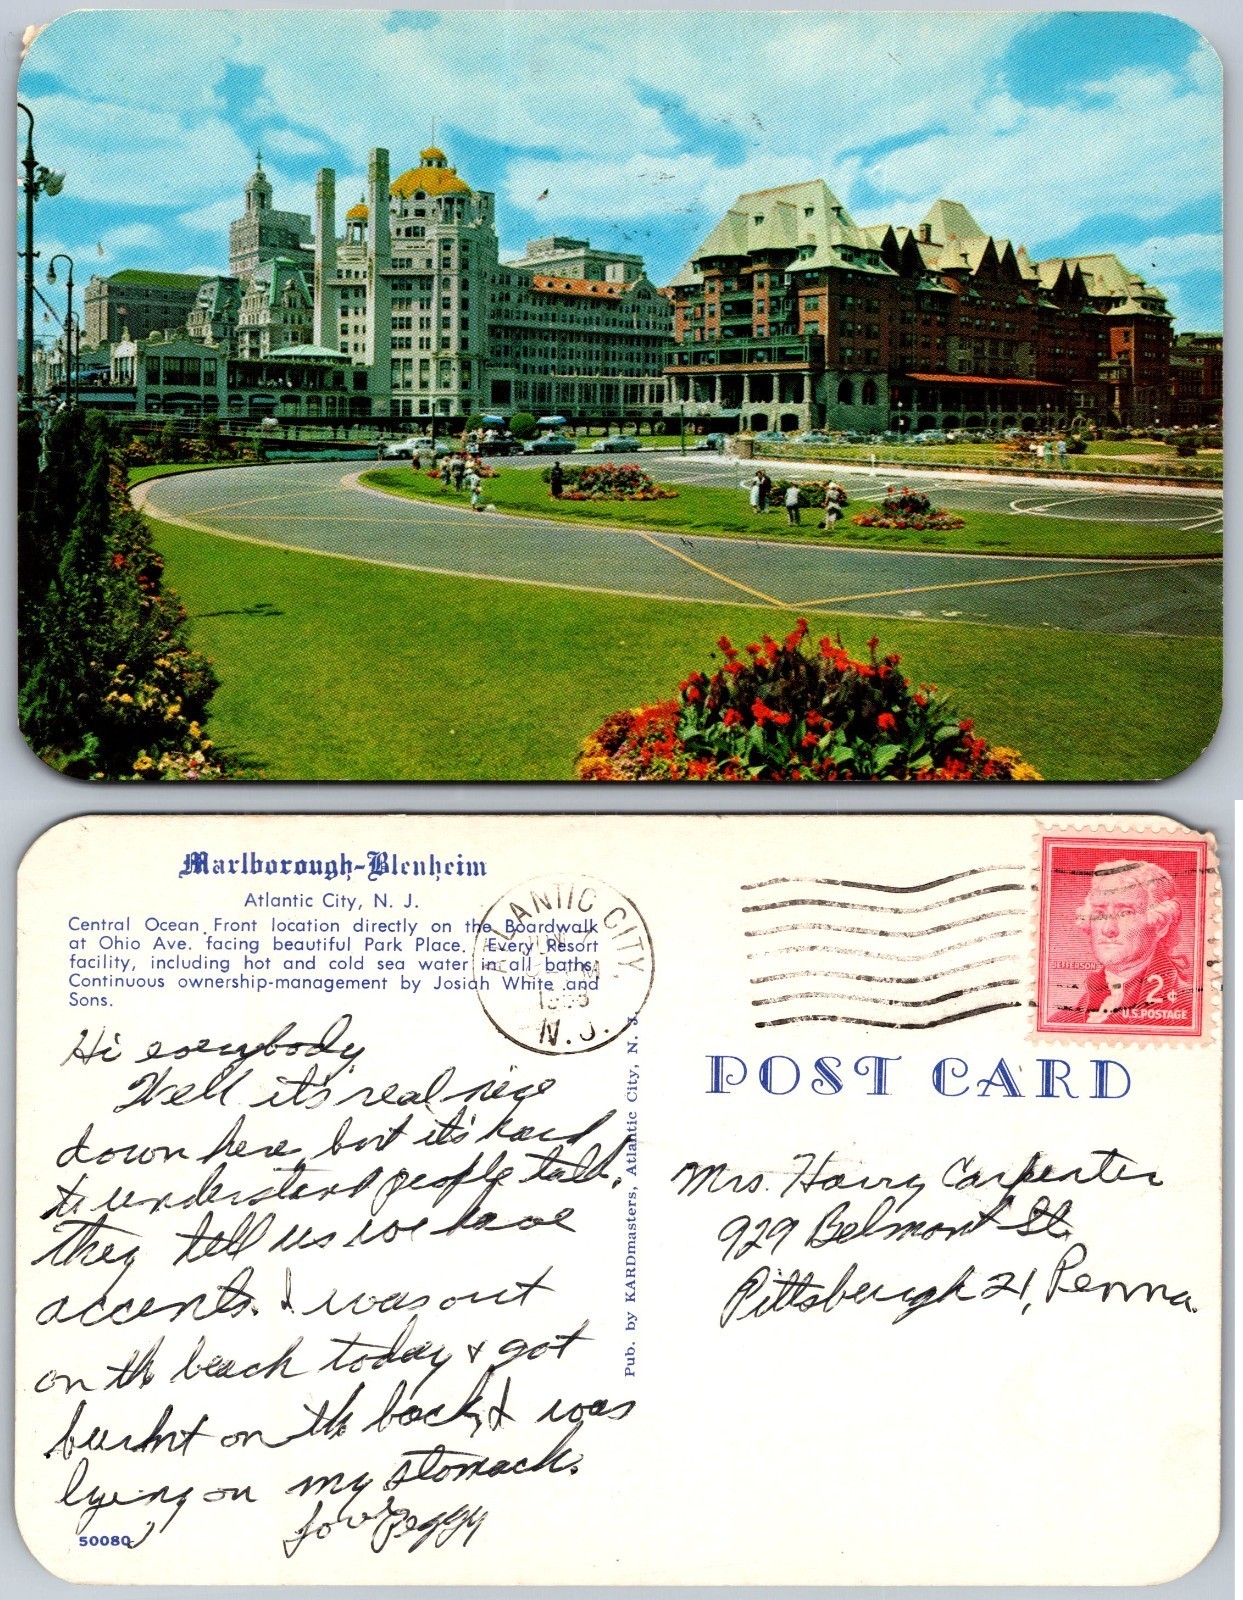 Marlborough-Blenheim
Atlantic City, N. J.
Central Ocean Front location directly on the Boardwalk
at Ohio Ave. facing beautiful Park Place. Every Resort
facility, including hot and cold sea water in all baths.
Continuous ownership-management by Josiah White and
Sons.
Hi everybody,
Well it's real nice
down here, but it's hard
to understand people talk,
they tell us we have
accents. I was out
on the beach today & got
burnt on the back, I was
lying on my stomach.
Love Peggy
50080
Pub. by KARDmasters, Atlantic City, N. J.
ATLANTIC CITY,
N. J.
JEFFERSON
2¢
U.S. POSTAGE
POST CARD
Mrs. Harry Carpenter
929 Belmont St.
Pittsburgh 21, Penna.